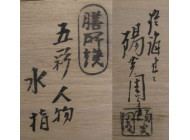 膳所焼
五彩人物
水指
淡海
陽炎園